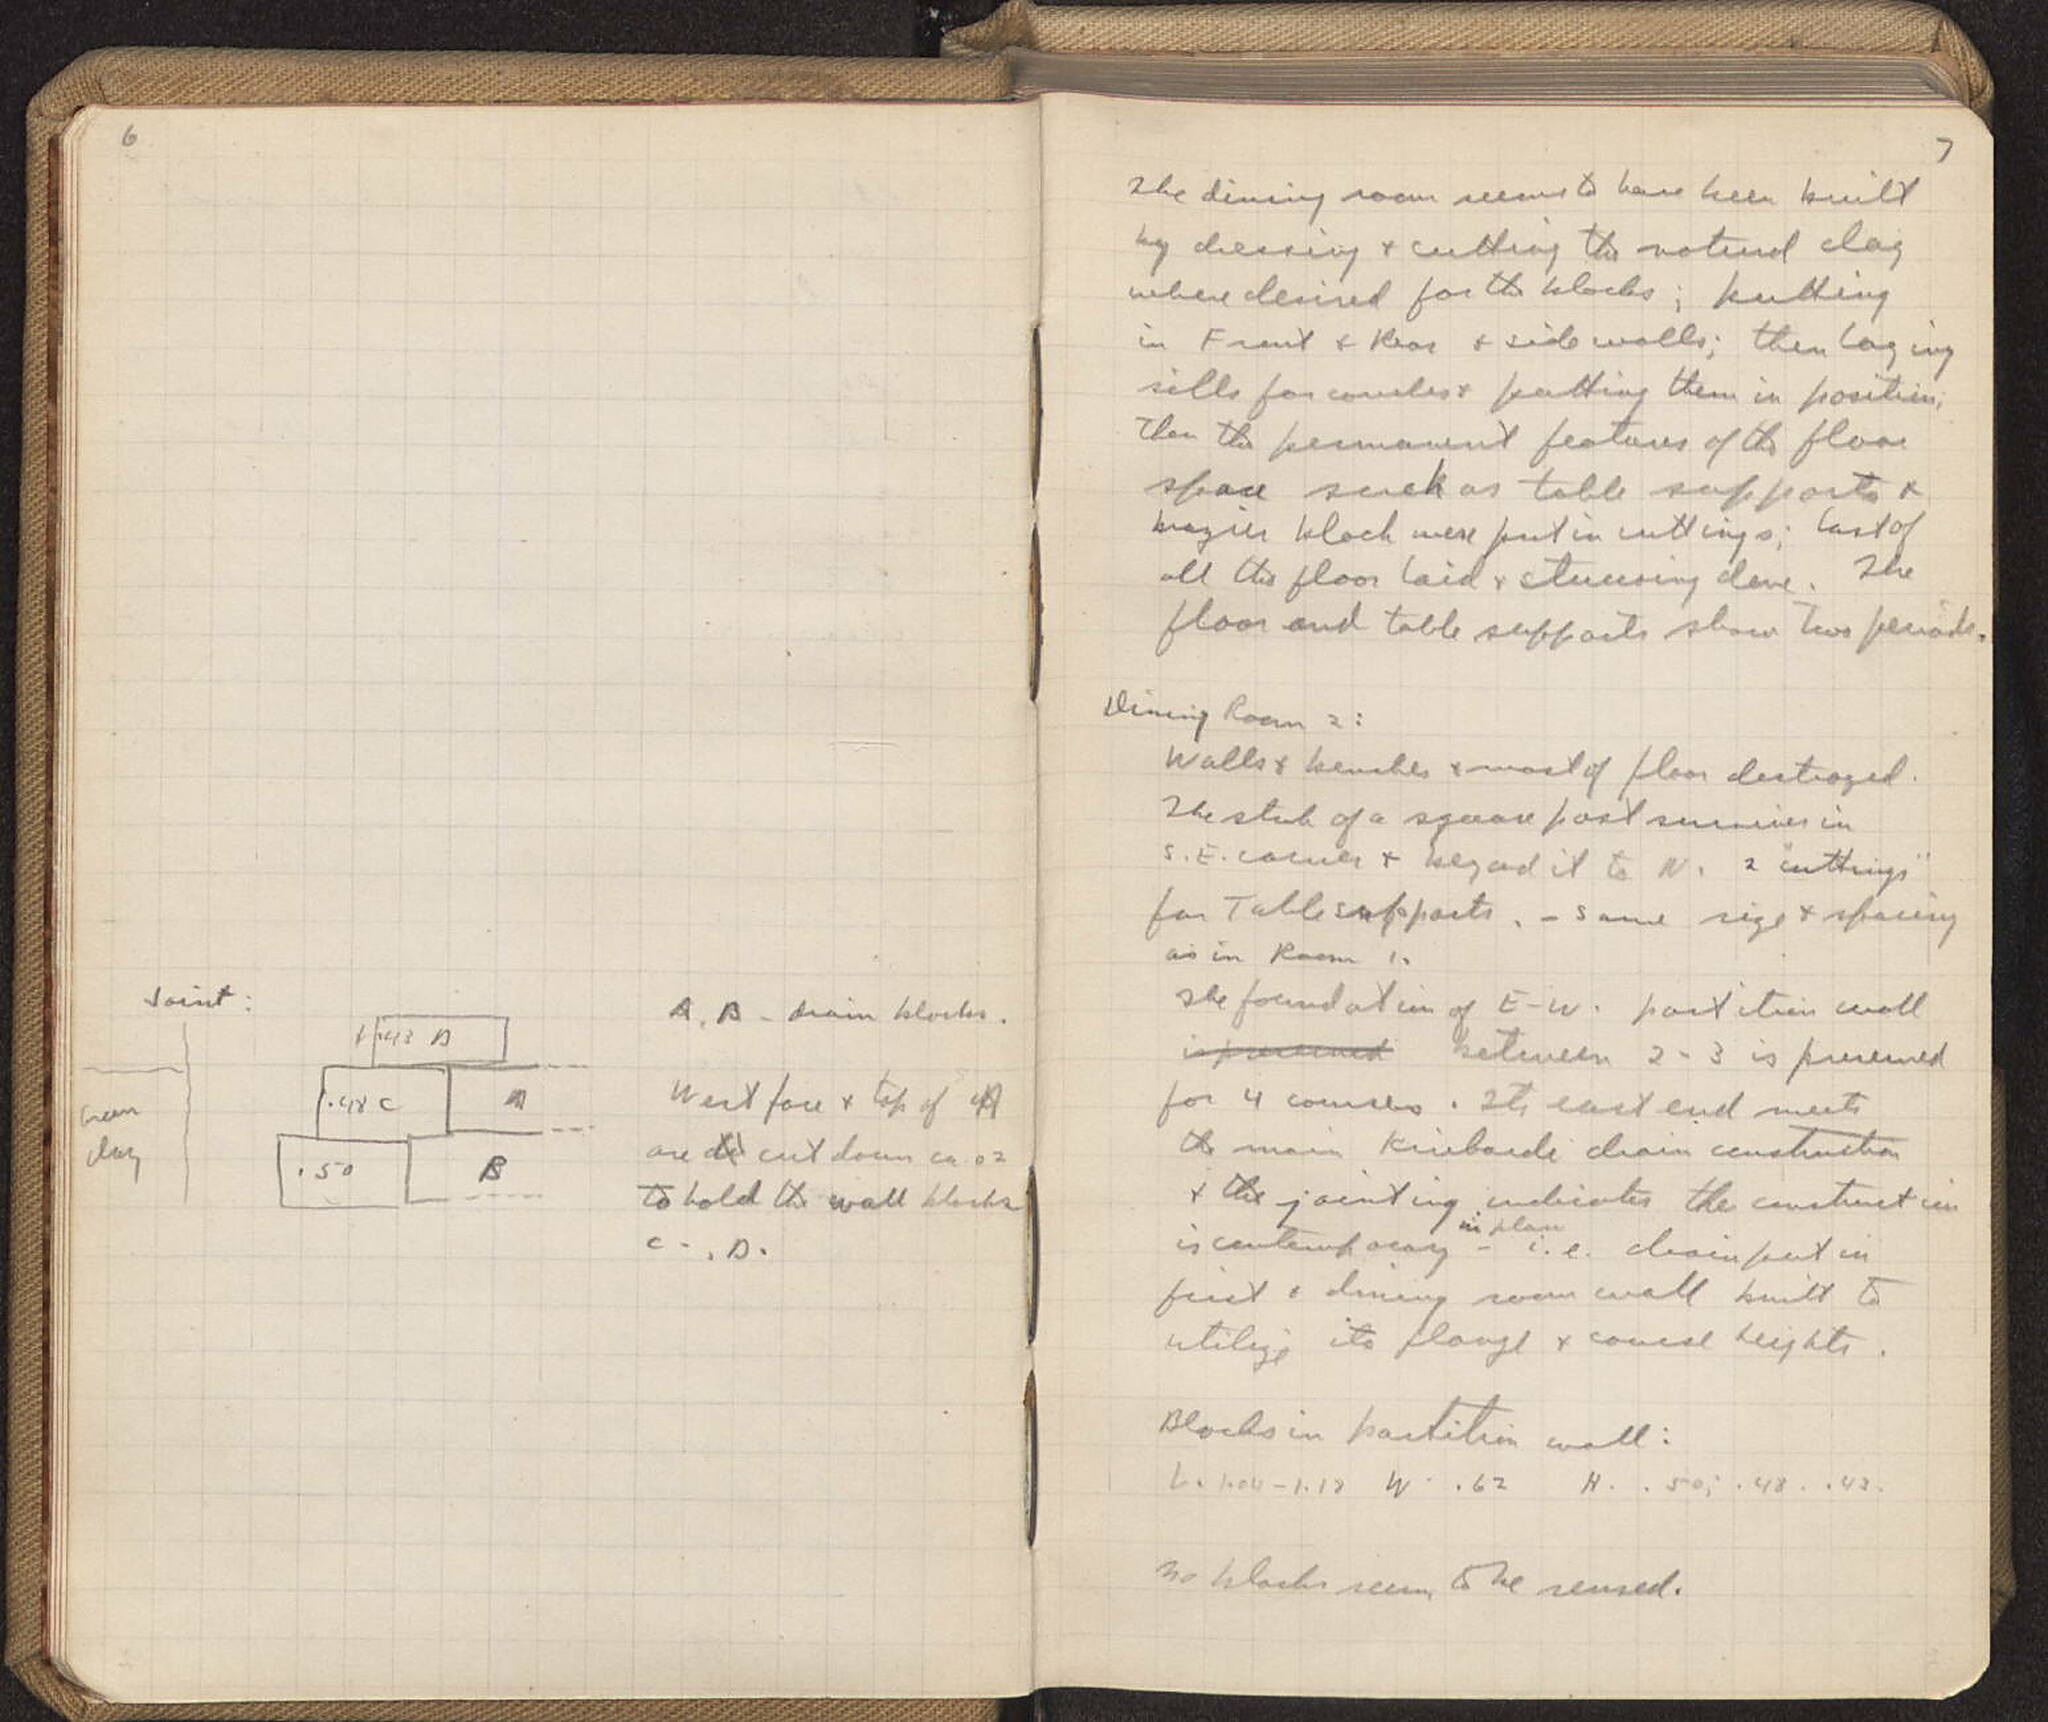 6
Joint:
.43 D
.48 C
A
green
clay
.50
B
A, B - drain blocks.
West face & top of A
are cut down ca 02
to hold the wall blocks
C - , D.
7
The dining room seems to have been built
by dressing & cutting the natural clay
where desired for the blocks; putting
in Front & Rear & side walls; then laying
sills for couches & putting them in position;
Then the permanent features of the floor
space such as table supports &
brazier block were put in cuttings; last of
all the floor laid & stuccoing done. The
floor and table supports show two periods.
Dining Room 2:
Walls & benches & most of floor destroyed.
The stub of a square post survives in
S.E. corner & beyond it to N. 2 "cuttings"
for Table supports. - same size & spacing
as in Room 1.
The foundation of E-W. partition wall
is preserved between 2-3 is preserved
for 4 courses. Its east end meets
the main drain construction
& the jointing indicates the construction
in place
is contemporary - i.e. drain put in
first & dining room wall built to
utilize its flange & course heights.
Blocks in partition wall:
L. 1.04-1.18 W. .62 H. .50; .48. .43.
No blocks seem to be reused.